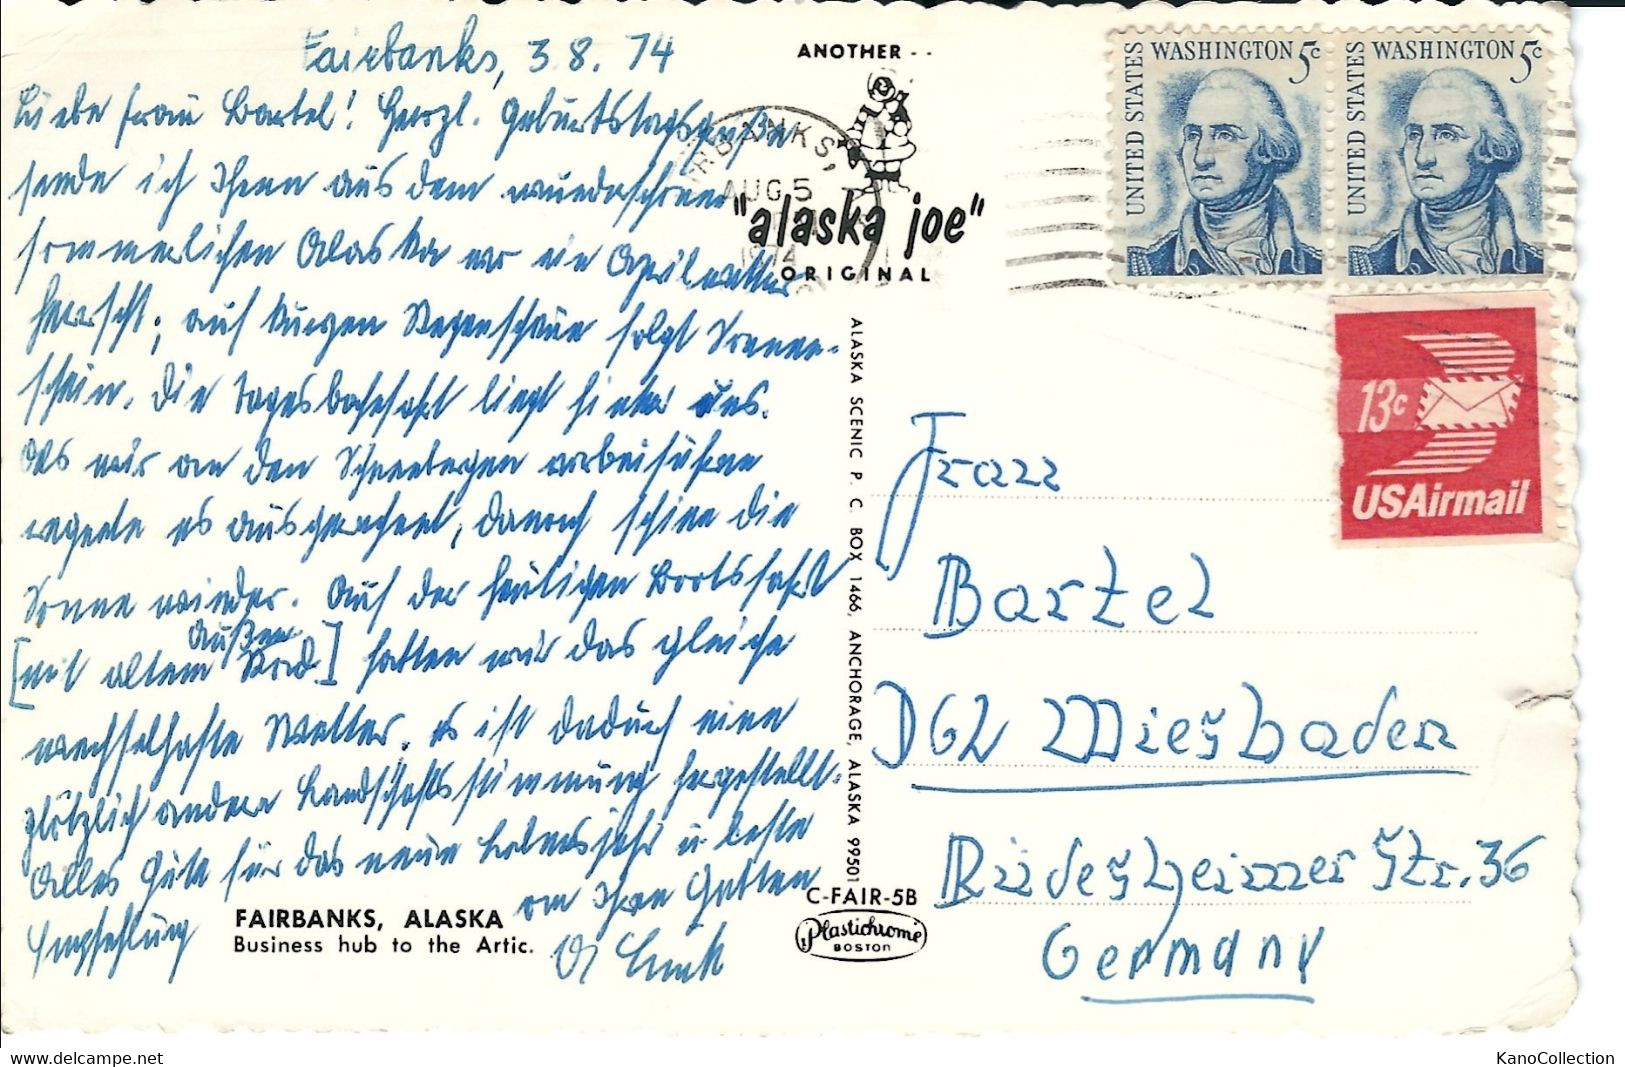 Fairbanks, 3.8.74
Liebe Frau Bartel! Herzl. Geburtstagsgrüße
sende ich Ihnen aus dem wunderschönen
sommerlichen Alaska wo ein Aprilwetter
herrscht; auf kurzen Regenschauer folgt Sonnen-
schein. Die Tagesbahnfahrt liegt hinter uns.
Als wir an den Schneebergen vorbeifuhren
regnete es ausgerechnet, danach schien die
Sonne wieder. Auf der heutigen Bootsfahrt
[mit altem Außen Rad] hatten wir das gleiche
wechselhafte Wetter. es ist dadurch eine
plötzlich andere Landschaftsstimmung hergestellt.
Alles Gute für das neue Lebensjahr u. beste
Empfehlung an Ihren Gatten
FAIRBANKS, ALASKA
Business hub to the Artic.
ANOTHER - -
"alaska joe"
ORIGINAL
AUG 5
1974
ALASKA SCENIC P. C. BOX 1466, ANCHORAGE, ALASKA 99501
C-FAIR-5B
Plastichrome
BOSTON
UNITED STATES WASHINGTON 5c
UNITED STATES WASHINGTON 5c
13c
USAirmail
Frau
Bartel
D62 Wiesbaden
Rüdesheimer Str. 36
Germany
KanoCollection